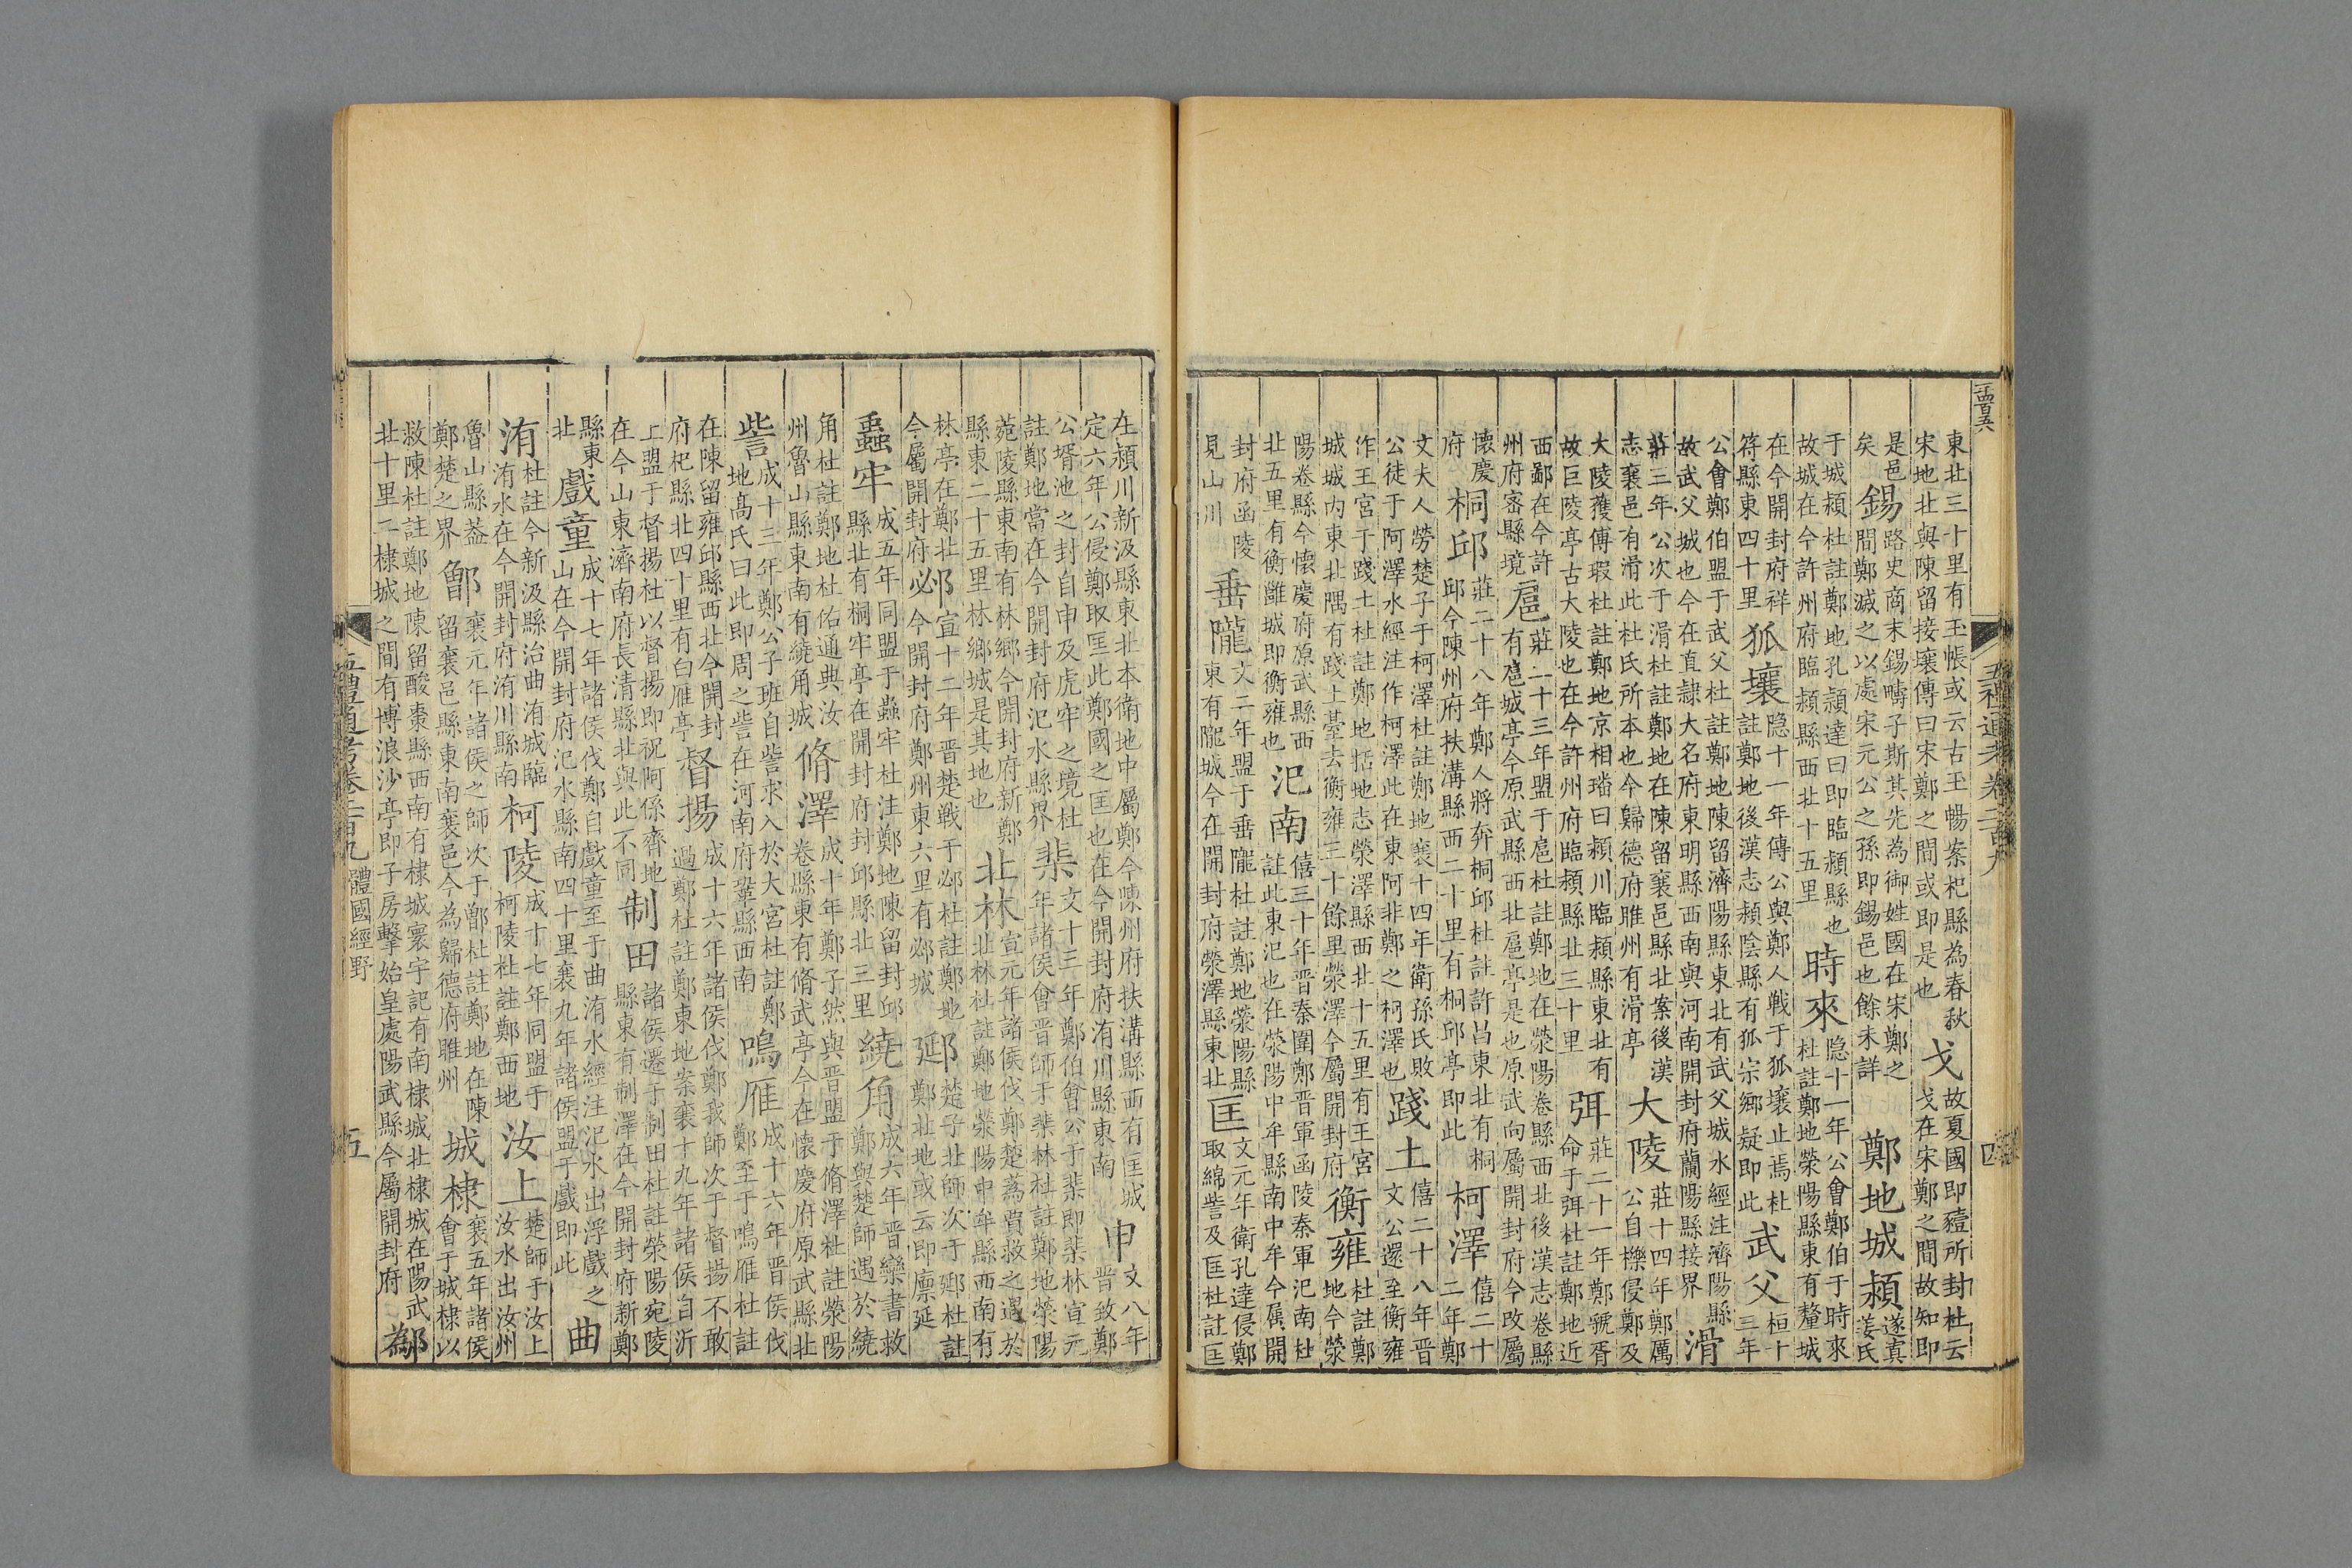 東北三十里有玉帳或云古玉暢案杞縣為春秋
宋地北與陳留接壤傳曰宋鄭之間或即是也
戈
故夏國即豷所封杜云
戈在宋鄭之間故知即
是邑
矣
錫
路史商末錫疇子斯其先為御姓國在宋鄭之
間鄭滅之以處宋元公之孫即錫邑也餘未詳
鄭地城潁
遂寘
姜氏
于城潁杜註鄭地孔潁達曰即臨潁縣也
故城在今許州府臨潁縣西北十五里
時來
隐十一年公會鄭伯于時來
杜註鄭地滎陽縣東有釐城
在今開封府祥
符縣東四十里
狐壤
隐十一年傳公與鄭人戰于狐壤止焉杜
註鄭地後漢志潁陰縣有狐宗鄉疑即此
武父
桓十
三年
公會鄭伯盟于武父杜註鄭地陳留濟陽縣東北有武父城水經注濟陽縣
故武父城也今在直隷大名府東明縣西南與河南開封府蘭陽縣接界
滑
莊三年公次于滑杜註鄭地在陳留襄邑縣北案後漢
志襄邑有滑此杜氏所本也今歸德府睢州有滑亭
大陵
莊十四年鄭厲
公自櫟侵鄭及
大陵獲傅瑕杜註鄭地京相璠曰潁川臨潁縣東北有
故巨陵亭古大陵也在今許州府臨潁縣北三十里
弭
莊二十一年鄭虢胥
命于弭杜註鄭地近
西鄙在今許
州府宻縣境
扈
莊二十三年盟于扈杜註鄭地在滎陽卷縣西北後漢志卷縣
有扈城亭今原武縣西北扈亭是也原武向屬開封府今改屬
懷慶
府
桐邱
莊二十八年鄭人將奔桐邱杜註許昌東北有桐
邱今陳州府扶溝縣西二十里有桐邱亭即此
柯澤
僖二十
二年鄭
文夫人勞楚子于柯澤杜註鄭地襄十四年衛孫氏敗
公徒于阿澤水經注作柯澤此在東阿非鄭之柯澤也
踐土
僖二十八年晋
文公還至衡雍
作王宮于踐土杜註鄭地括地志滎澤縣西北十五里有王宮
城城内東北隅有踐土臺去衡雍三十餘里滎澤今屬開封府
衡雍
杜註鄭
地今滎
陽卷縣今懷慶府原武縣西
北五里有衡雝城即衡雍也
汜南
僖三十年晋秦圍鄭晋軍函陵秦軍汜南杜
註此東汜也在滎陽中牟縣南中牟今属開
封府函陵
見山川
垂隴
文二年盟于垂隴杜註鄭地滎陽縣
東有隴城今在開封府滎澤縣東北
匡
文元年衛孔達侵鄭
取綿訾及匡杜註匡
在潁川新汲縣東北本衛地中屬鄭今陳州府扶溝縣西有匡城
定六年公侵鄭取匡此鄭國之匡也在今開封府洧川縣東南
申
文八年
晋致鄭
公壻池之封自申及虎牢之境杜
註鄭地當在今開封府汜水縣界
棐
文十三年鄭伯會公于棐即棐林宣元
年諸侯會晋師于棐林杜註鄭地滎陽
菀陵縣東南有林鄉今開封府新鄭
縣東二十五里林鄉城是其地也
北林
宣元年諸侯伐鄭楚蒍賈救之遇於
北林杜註鄭地滎陽中牟縣西南有
林亭在鄭北
今屬開封府
邲
宣十二年晋楚戰于邲杜註鄭地
今開封府鄭州東六里有邲城
郔
楚子北師次于郔杜註
鄭北地或云即廪延
蟲牢
成五年同盟于蟲牢杜注鄭地陳留封邱
縣北有桐牢亭在開封府封邱縣北三里
繞角
成六年晋欒書救
鄭與楚師遇於繞
角杜註鄭地杜佑通典汝
州魯山縣東南有繞角城
脩澤
成十年鄭子然與晋盟于脩澤杜註滎陽
卷縣東有脩武亭今在懷慶府原武縣北
訾
成十三年鄭公子班自訾求入於大宮杜註鄭
地高氏曰此即周之訾在河南府鞏縣西南
鳴雁
成十六年晋侯伐
鄭至于鳴雁杜註
在陳留雍邱縣西北今開封
府杞縣北四十里有白雁亭
督揚
成十六年諸侯伐鄭我師次于督揚不敢
過鄭杜註鄭東地案襄十九年諸侯自沂
上盟于督揚杜以督揚即祝阿係齊地
在今山東濟南府長清縣北與此不同
制田
諸侯遷于制田杜註滎陽宛陵
縣東有制澤在今開封府新鄭
縣東
北
戲童
成十七年諸侯伐鄭自戲童至于曲洧水經注汜水出浮戲之
山在今開封府汜水縣南四十里襄九年諸侯盟于戲即此
曲
洧
杜註今新汲縣治曲洧城臨
洧水在今開封府洧川縣南
柯陵
成十七年同盟于
柯陵杜註鄭西地
汝上
楚師于汝上
汝水出汝州
魯山縣葢
鄭楚之界
鄫
襄元年諸侯之師次于鄫杜註鄭地在陳
留襄邑縣東南襄邑今為歸德府睢州
城棣
襄五年諸侯
會于城棣以
救陳杜註鄭地陳留酸棗縣西南有棣城寰宇記有南棣城北棣城在陽武
北十里二棣城之間有博浪沙亭即子房擊始皇處陽武縣今屬開封府
鄬
五禮通考卷二百九
體國經野
四
五